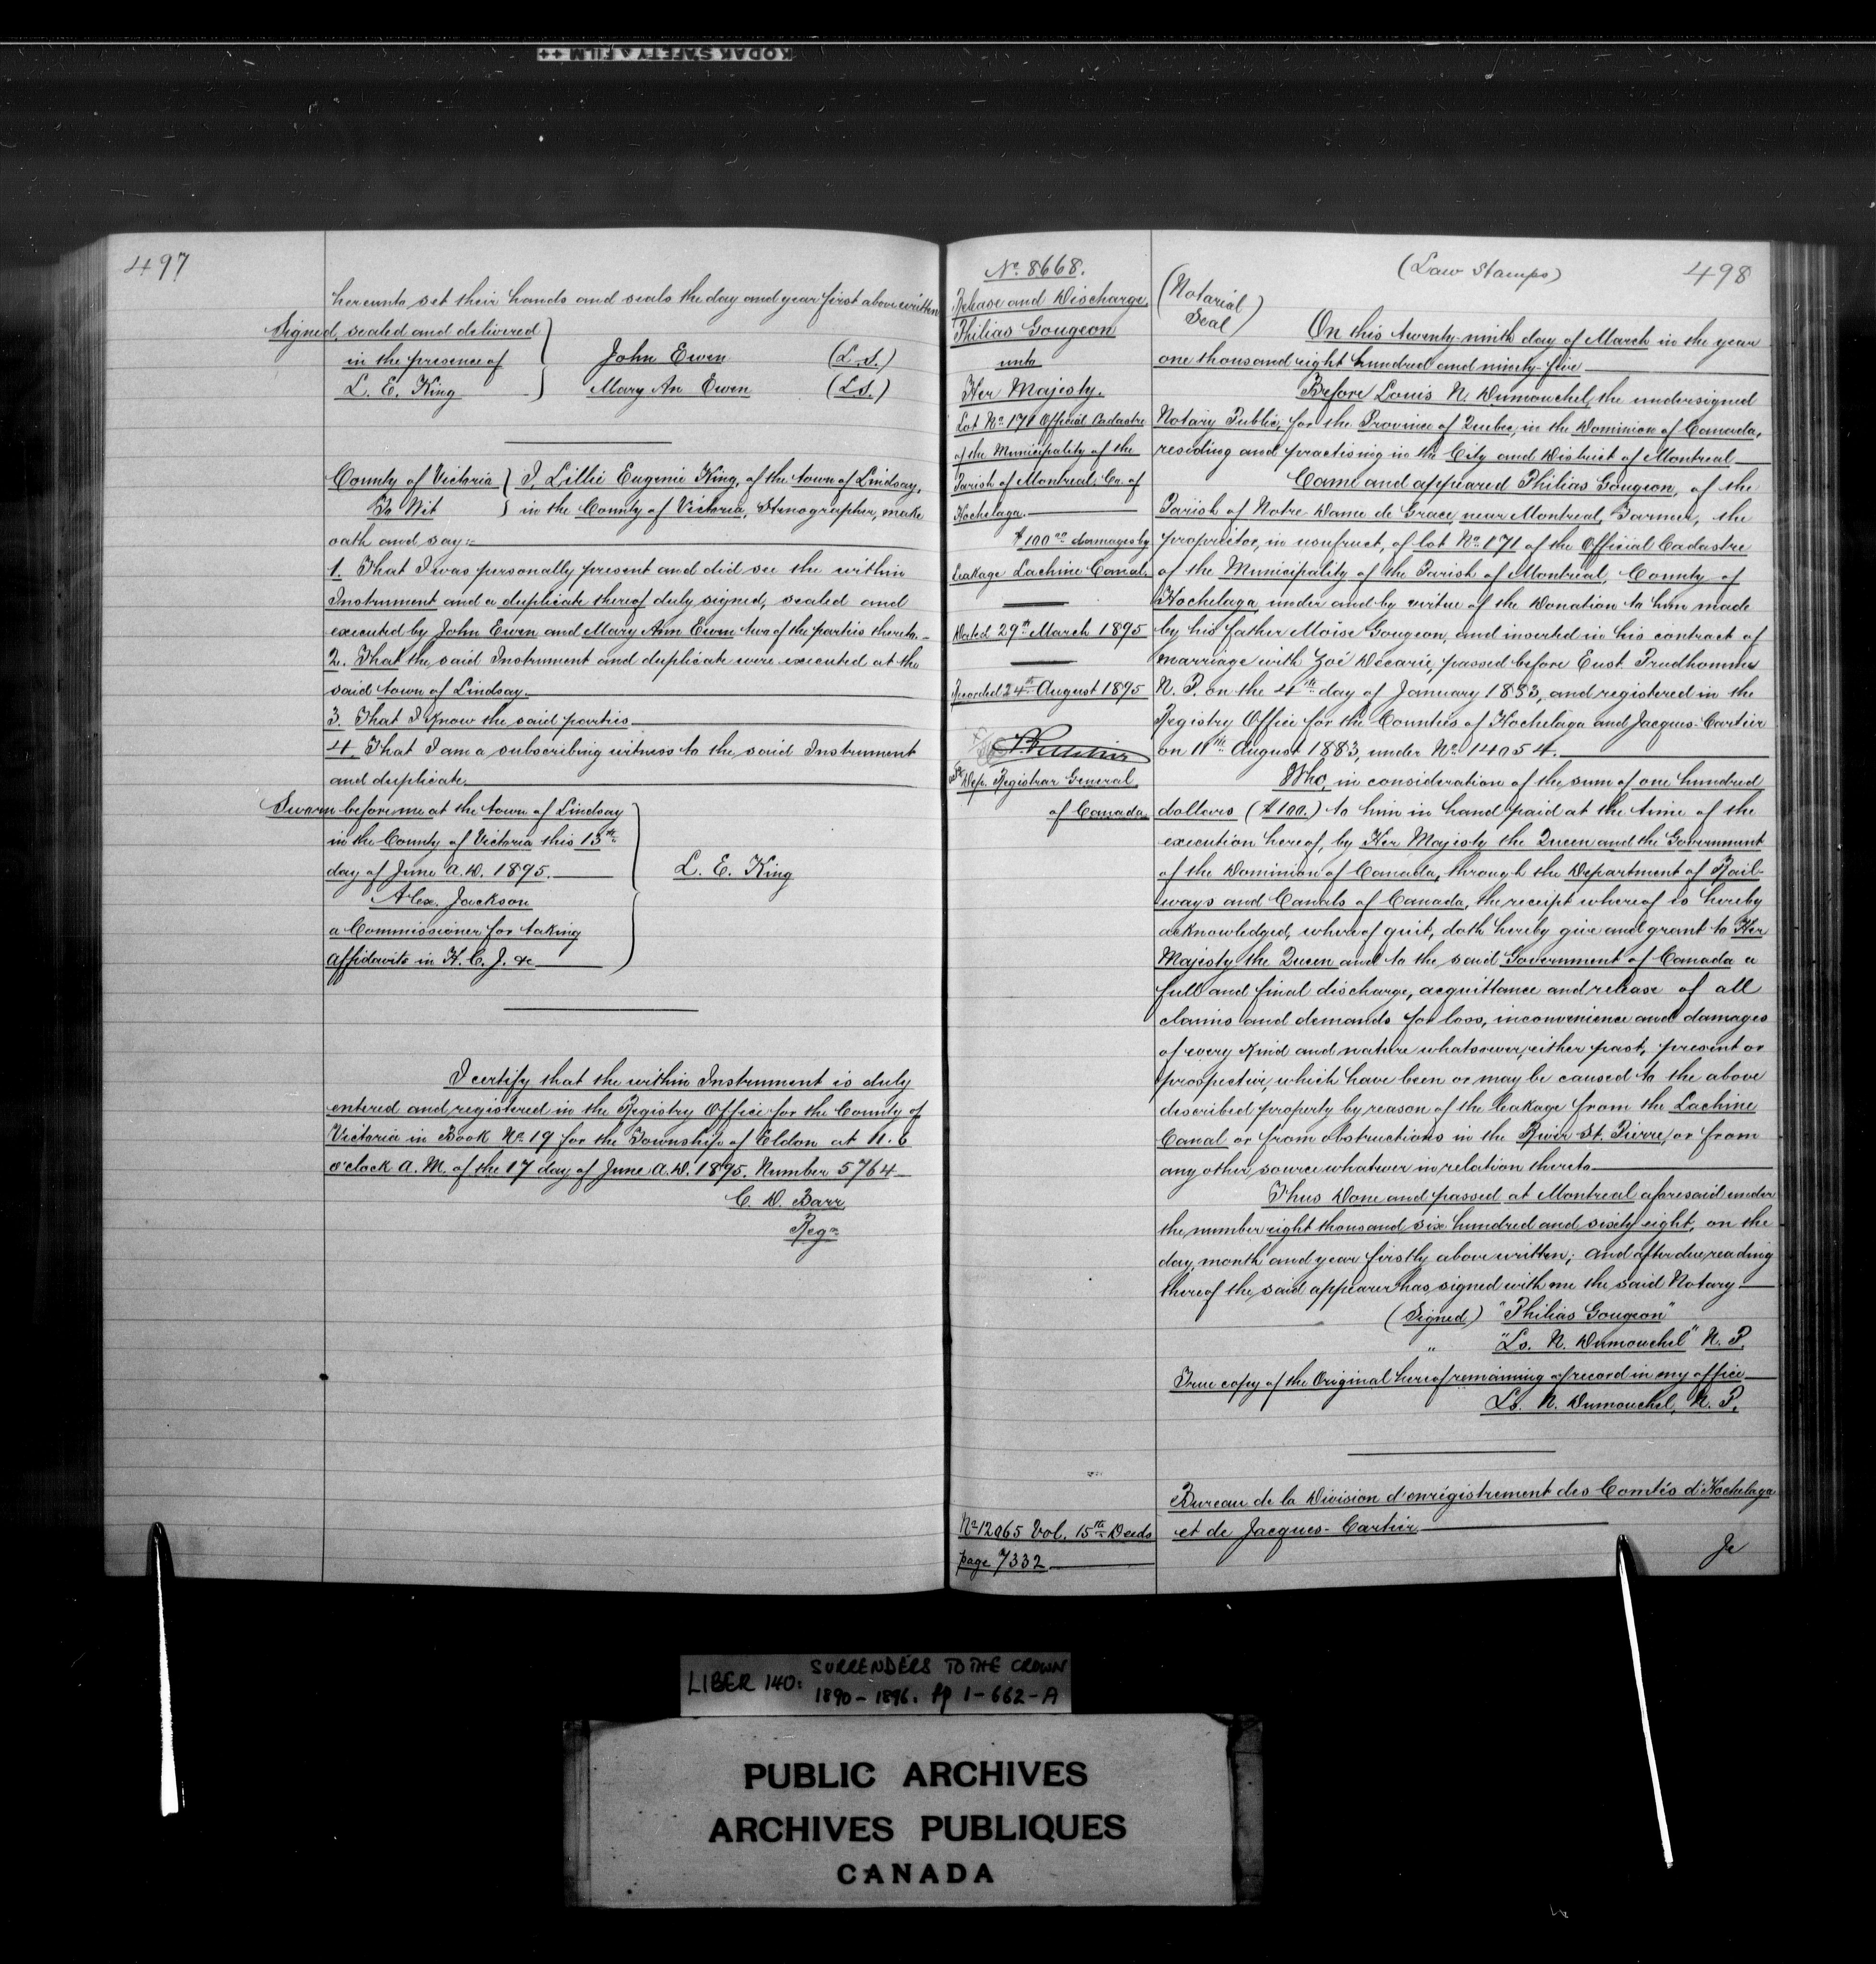 KODAK SAFETY FILM ++
497
hereunto set their hands and seals the day and year first above written
Signed, sealed and delivered
in the presence of
L. E. King
John Ewen (L.S.)
Mary An Ewen (L.S.)
County of Victoria
To Wit
I, Lillie Eugenie King, of the town of Lindsay,
in the County of Victoria, Stenographer, make
oath and say:-
1. That I was personally present and did see the within
Instrument and a duplicate thereof duly signed, sealed and
executed by John Ewen and Mary Ann Ewen two of the parties thereto.-
2. That the said Instrument and duplicate were executed at the
said town of Lindsay.
3. That I know the said parties
4. That I am a subscribing witness to the said Instrument
and duplicate.
Sworn before me at the town of Lindsay
in the County of Victoria this 13th
day of June A.D. 1895.
Alex. Jackson
a Commissioner for taking
affidavits in H. C. J. &c
L. E. King
I certify that the within Instrument is duly
entered and registered in the Registry Office for the County of
Victoria in Book No 19 for the Township of Eldon at 11.6
o'clock A. M. of the 17 day of June A.D. 1895. Number 5764
C. D. Barr
Regr
No 8668.
Release and Discharge.
Philias Gougeon
unto
Her Majesty.
Lot No 171 Official Cadastre
of the Municipality of the
Parish of Montreal, Co. of
Hochelaga.
$100 00 damages by
Leakage Lachine Canal.
Dated 29th March 1895
Recorded 24th August 1895
Dep. Registrar General
of Canada
No 12065 Vol. 15th Deeds
page 7332
(Law Stamps)
498
(Notarial
Seal)
On this twenty-ninth day of March in the year
one thousand eight hundred and ninety-five
Before Louis N. Dumouchel, the undersigned
Notary Public, for the Province of Quebec, in the Dominion of Canada,
residing and practising in the City and District of Montreal
Came and appeared Philias Gougeon, of the
Parish of Notre Dame de Grace, near Montreal, Farmer, the
proprietor, in usufruct, of lot No 171 of the Official Cadastre
of the Municipality of the Parish of Montreal, County of
Hochelaga, under and by virtue of the Donation to him made
by his father Moïse Gougeon, and inserted in his contract of
marriage with Zoé Décarie, passed before Eust. Prudhomme
N. P. on the 4th day of January 1883, and registered in the
Registry Office for the Counties of Hochelaga and Jacques-Cartier
on 11th August 1883, under No 14054.
Who, in consideration of the sum of one hundred
dollars ($100.) to him in hand paid at the time of the
execution hereof, by Her Majesty the Queen and the Government
of the Dominion of Canada, through the Department of Rail-
ways and Canals of Canada, the receipt whereof is hereby
acknowledged, whereof quit, doth hereby give and grant to Her
Majesty the Queen and to the said Government of Canada a
full and final discharge, acquittance and release of all
claims and demands for loss, inconvenience and damages
of every kind and nature whatsoever, either past, present or
prospective which have been or may be caused to the above
described property by reason of the leakage from the Lachine
Canal or from obstructions in the River St. Pierre, or from
any other source whatever in relation thereto
Thus Done and passed at Montreal aforesaid under
the number eight thousand six hundred and sixty eight, on the
day, month and year firstly above written; and after due reading
thereof the said appearer has signed with me the said Notary
(Signed) "Philias Gougeon"
" "Ls. N. Dumouchel" N. P.
True copy of the Original hereof remaining of record in my office
Ls. N. Dumouchel, N. P.
Bureau de la Division d'enrégistrement des Comtés d'Hochelaga
et de Jacques-Cartier
Je
LIBER 140: SURRENDERS TO THE CROWN
1890-1896. pp 1-662-A
PUBLIC ARCHIVES
ARCHIVES PUBLIQUES
CANADA